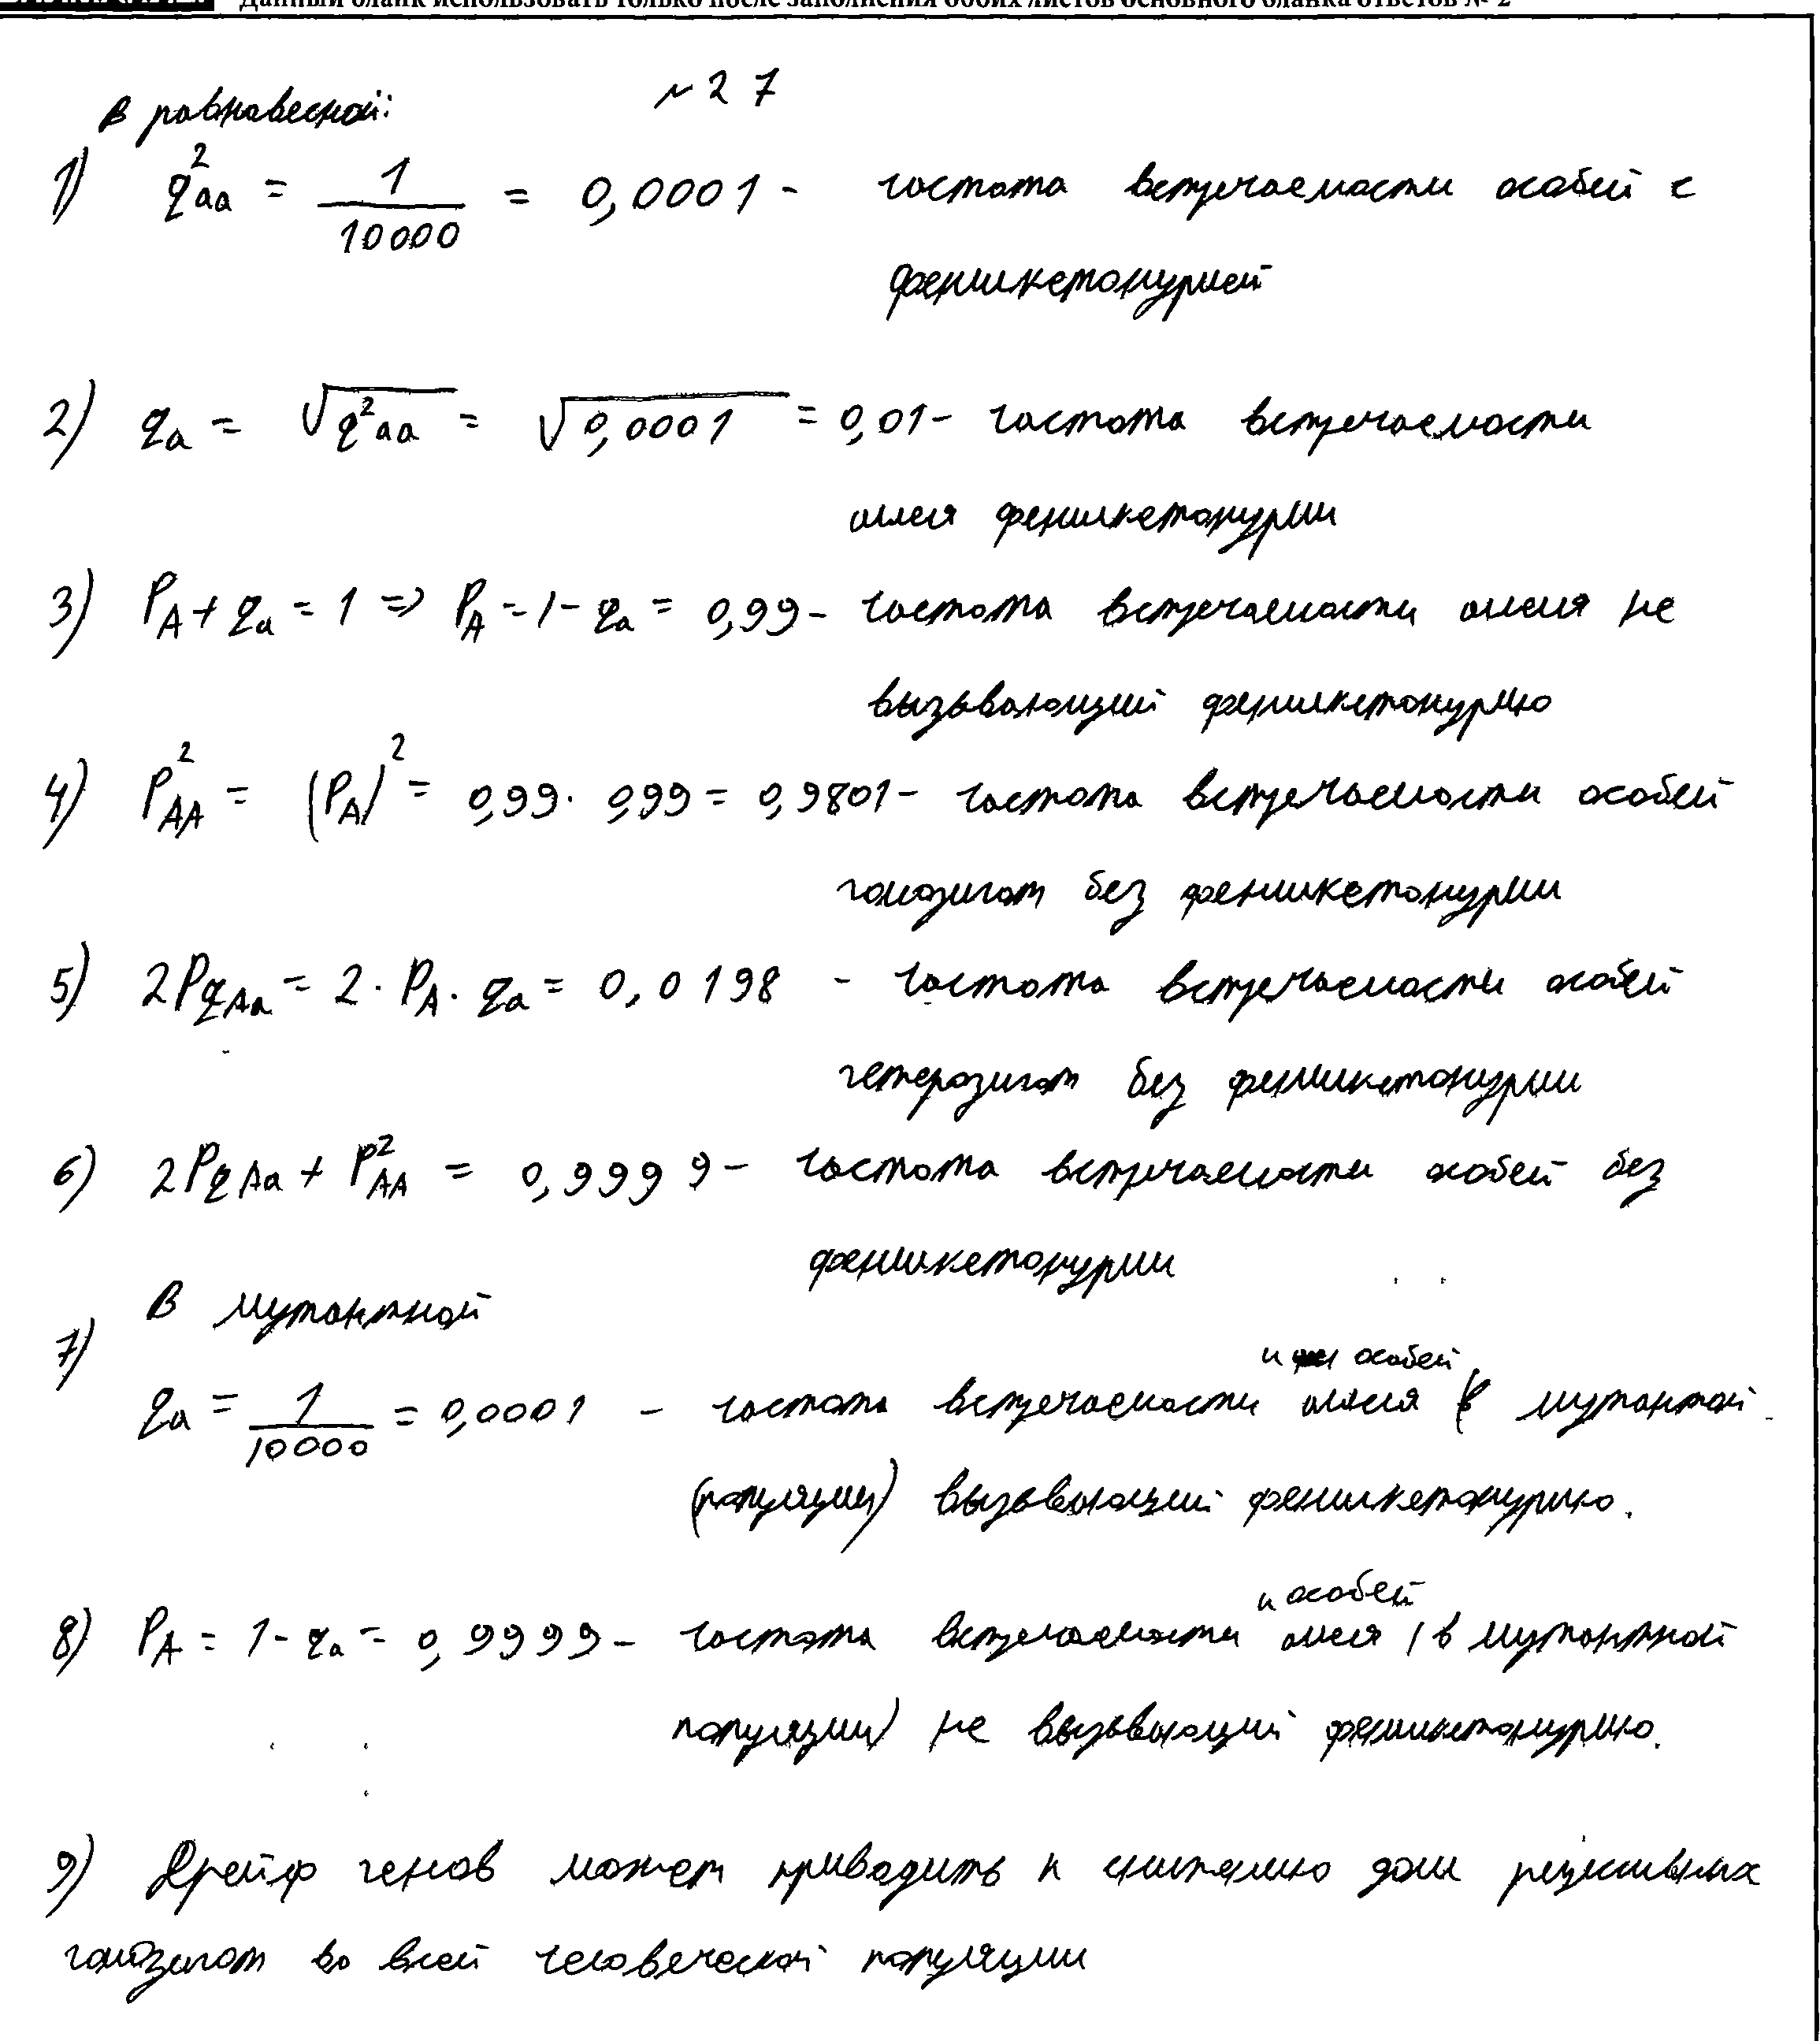 Данный бланк использовать только после заполнения обоих листов основного бланка ответов № 2
№ 27
В равновесной:
1) q²aa = 1/10000 = 0,0001 - частота встречаемости особей с
фенилкетонурией
2) qa = √q²aa = √0,0001 = 0,01 - частота встречаемости
аллеля фенилкетонурии
3) PA + qa = 1 => PA = 1 - qa = 0,99 - частота встречаемости аллеля не
вызывающий фенилкетонурию
4) P²AA = (PA)² = 0,99 · 0,99 = 0,9801 - частота встречаемости особей
гомозигот без фенилкетонурии
5) 2PqAa = 2 · PA · qa = 0,0198 - частота встречаемости особей
гетерозигот без фенилкетонурии
6) 2PqAa + P²AA = 0,9999 - частота встречаемости особей без
фенилкетонурии
В мутантной
7)
и особей
qa = 1/10000 = 0,0001 - частота встречаемости аллеля (в мутантной
популяции) вызывающий фенилкетонурию.
и особей
8) PA = 1 - qa = 0,9999 - частота встречаемости аллеля (в мутантной
популяции) не вызывающий фенилкетонурию.
9) Дрейф генов может приводить к снижению доли рецессивных
гомозигот во всей человеческой популяции